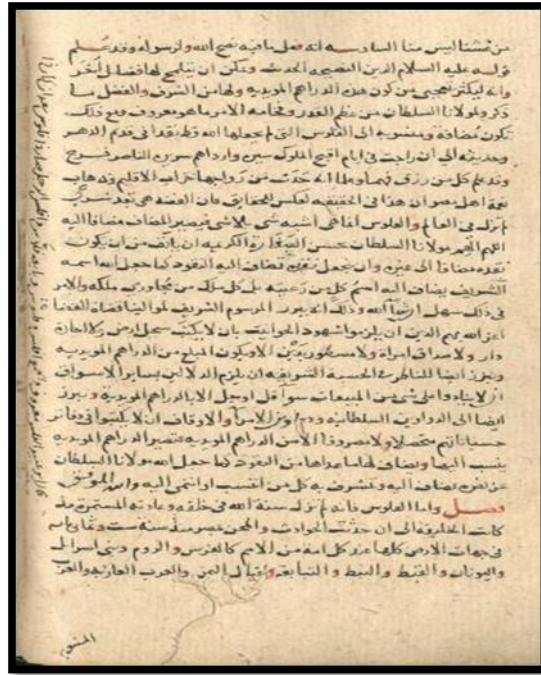 من غشنا ليس منا السادسة انه فعل ما فيه نصح لله ولرسوله وقد علم
قوله عليه السلام الدين النصيحة الحديث ويمكن ان يتلمح لها فضايل أخر
وانه ليكثر تعجبي من كون هذه الدراهم المويدية ولها من الشرف والفضل ما
ذكر ولمولانا السلطان من عظم القدر وفخامة الامر ما هو معروف ومع ذلك
تكون مضافة ومنسوبة الى الفلوس التي لم يجعلها الله قط نقدا في قديم الدهر
وحديثه الى ان راجت في ايام اقبح الملوك سيرة وارداهم سريرة الناصر فرج
وقد علم كل من رزق فهما وعلما انه حدث من رواجها خراب الاقليم وذهاب
نعمة اهل مصر وان هذا في الحقيقة لعكس للحقايق فان الفضة هي نقد شرعي
لم تزل في العالم والفلوس انما هي اشبه شي بلا شي فيصير المضاف مضافا اليه
اللهم الهم مولانا السلطان بحسن السفارة الكريمة ان يانف من ان يكون
نقده مضافا الى غيره وان يجعل نقده تضاف اليه النقود كما جعل الله اسمه
الشريف يضاف اليه اسم كل من رعيته بل كل ملك من مجاوري ملكه والامر
في ذلك سهل ان شا الله وذلك انه يبرز المرسوم الشريف لموالينا قضاة القضا
اعز الله بهم الدين ان يلزموا شهود الحوانيت بان لا يكتب سجل ارض ولا اجارة
دار ولا صداق امراة ولا مسطور بدين الا ويكون المبلغ من الدراهم المويدية
ويبرز ايضا للناظر في الحسبة الشريفة ان يلزم الدلالين بساير الاسواق
ان لا ينادوا على شي من المبيعات سوا قل او جل الا بالدراهم المويدية ويبرز
ايضا الى الدواوين السلطانية ودواوين الامرا والاوقاف ان لا يكتبوا في دفاتر
حسباناتهم متحصلا ولا مصروفا الا من الدراهم المويدية فتصير الدراهم المويدية
ينسب اليها ويضاف لها ما عداها من النقود كما جعل الله مولانا السلطان
عز نصره يضاف اليه ويتشرف به كل من انتسب او انتمى اليه والله الموفق
فصل واما الفلوس فانه لم تزل سنة الله في خلقه وعادته المستمرة منذ
كانت الخليقة الى ان حدثت الحوادث والمحن بمصر منذ سنة ست وثماني ماية
في جهات الارض كلها عند كل امة من الامم كالفرس والروم وبني اسرايل
واليونان والقبط والنبط والتبابعة واقيال اليمن والعرب العاربة والعرب